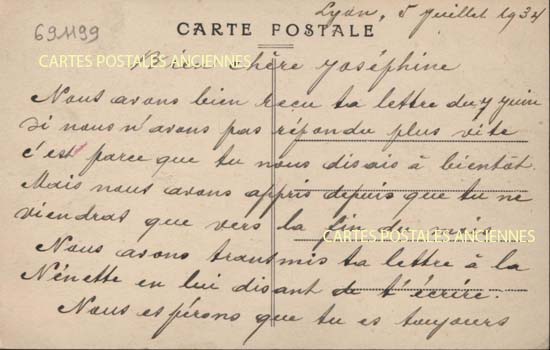 Lyon, 5 Juillet 1934
CARTE POSTALE
691199
CARTES POSTALES ANCIENNES
Bien chère Joséphine
Nous avons bien reçu ta lettre du 7 juin
si nous n'avons pas répondu plus vite
c'est parce que tu nous disais à bientôt.
Mais nous avons appris depuis que tu ne
viendras que vers la fin du mois
CARTES POSTALES ANCIENNES
Nous avons transmis ta lettre à la
Nénette en lui disant de t'écrire.
Nous espérons que tu es toujours